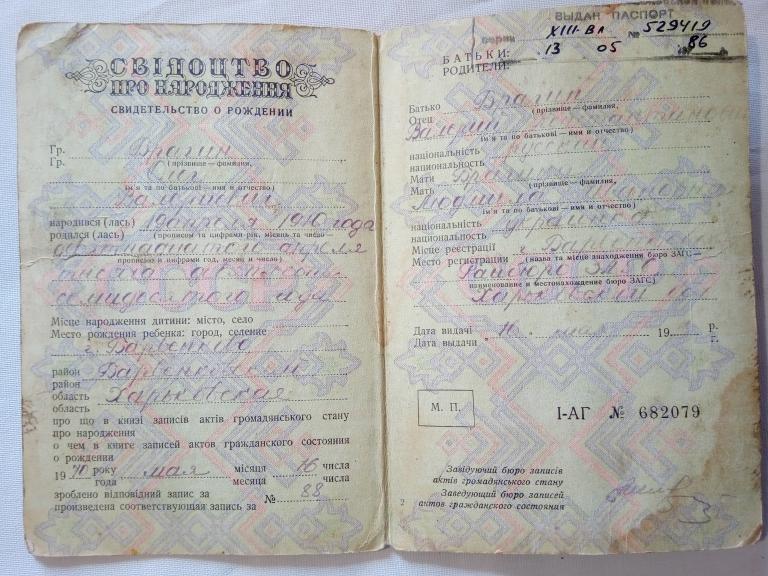 СВІДОЦТВО
ПРО НАРОДЖЕННЯ
СВИДЕТЕЛЬСТВО О РОЖДЕНИИ
Гр. Брагин
Гр. (прізвище — фамилия,
ім'я та по батькові — имя и отчество)
Валериевич
народився (лась) 1970 года
родился (лась) (прописом та цифрами рік, місяць та число
апреля
прописью и цифрами год, месяц и число)
тысяча девятьсот
семидесятого года
Місце народження дитини: місто, село
Место рождения ребенка: город, селение
г. Барвенково
район Барвенковский
район
область Харьковская
область
про що в книзі записів актів громадянського стану
про народження
о чем в книге записей актов гражданского состояния
о рождении
1970 року мая місяця 16 числа
года месяца числа
зроблено відповідний запис за № 88
произведена соответствующая запись за
ВЫДАН ПАСПОРТ
серии XIII-ВЛ № 529419
13 05 86
БАТЬКИ:
РОДИТЕЛИ:
Батько Брагин
Отец (прізвище — фамилия,
Валерий
ім'я та по батькові — имя и отчество)
національність русский
национальность
Мати
Мать (прізвище — фамилия,
Людмила
ім'я та по батькові — имя и отчество)
національність
национальность
Місце реєстрації г.
Место регистрации (назва та місце знаходження бюро ЗАГС —
Райбюро ЗАГС
наименование и местонахождение бюро ЗАГС)
Харьковской обл
Дата видачі 16 мая 19 р.
Дата выдачи г.
М. П.
I-АГ № 682079
Завідуючий бюро записів
актів громадянського стану
Заведующий бюро записей
актов гражданского состояния
2